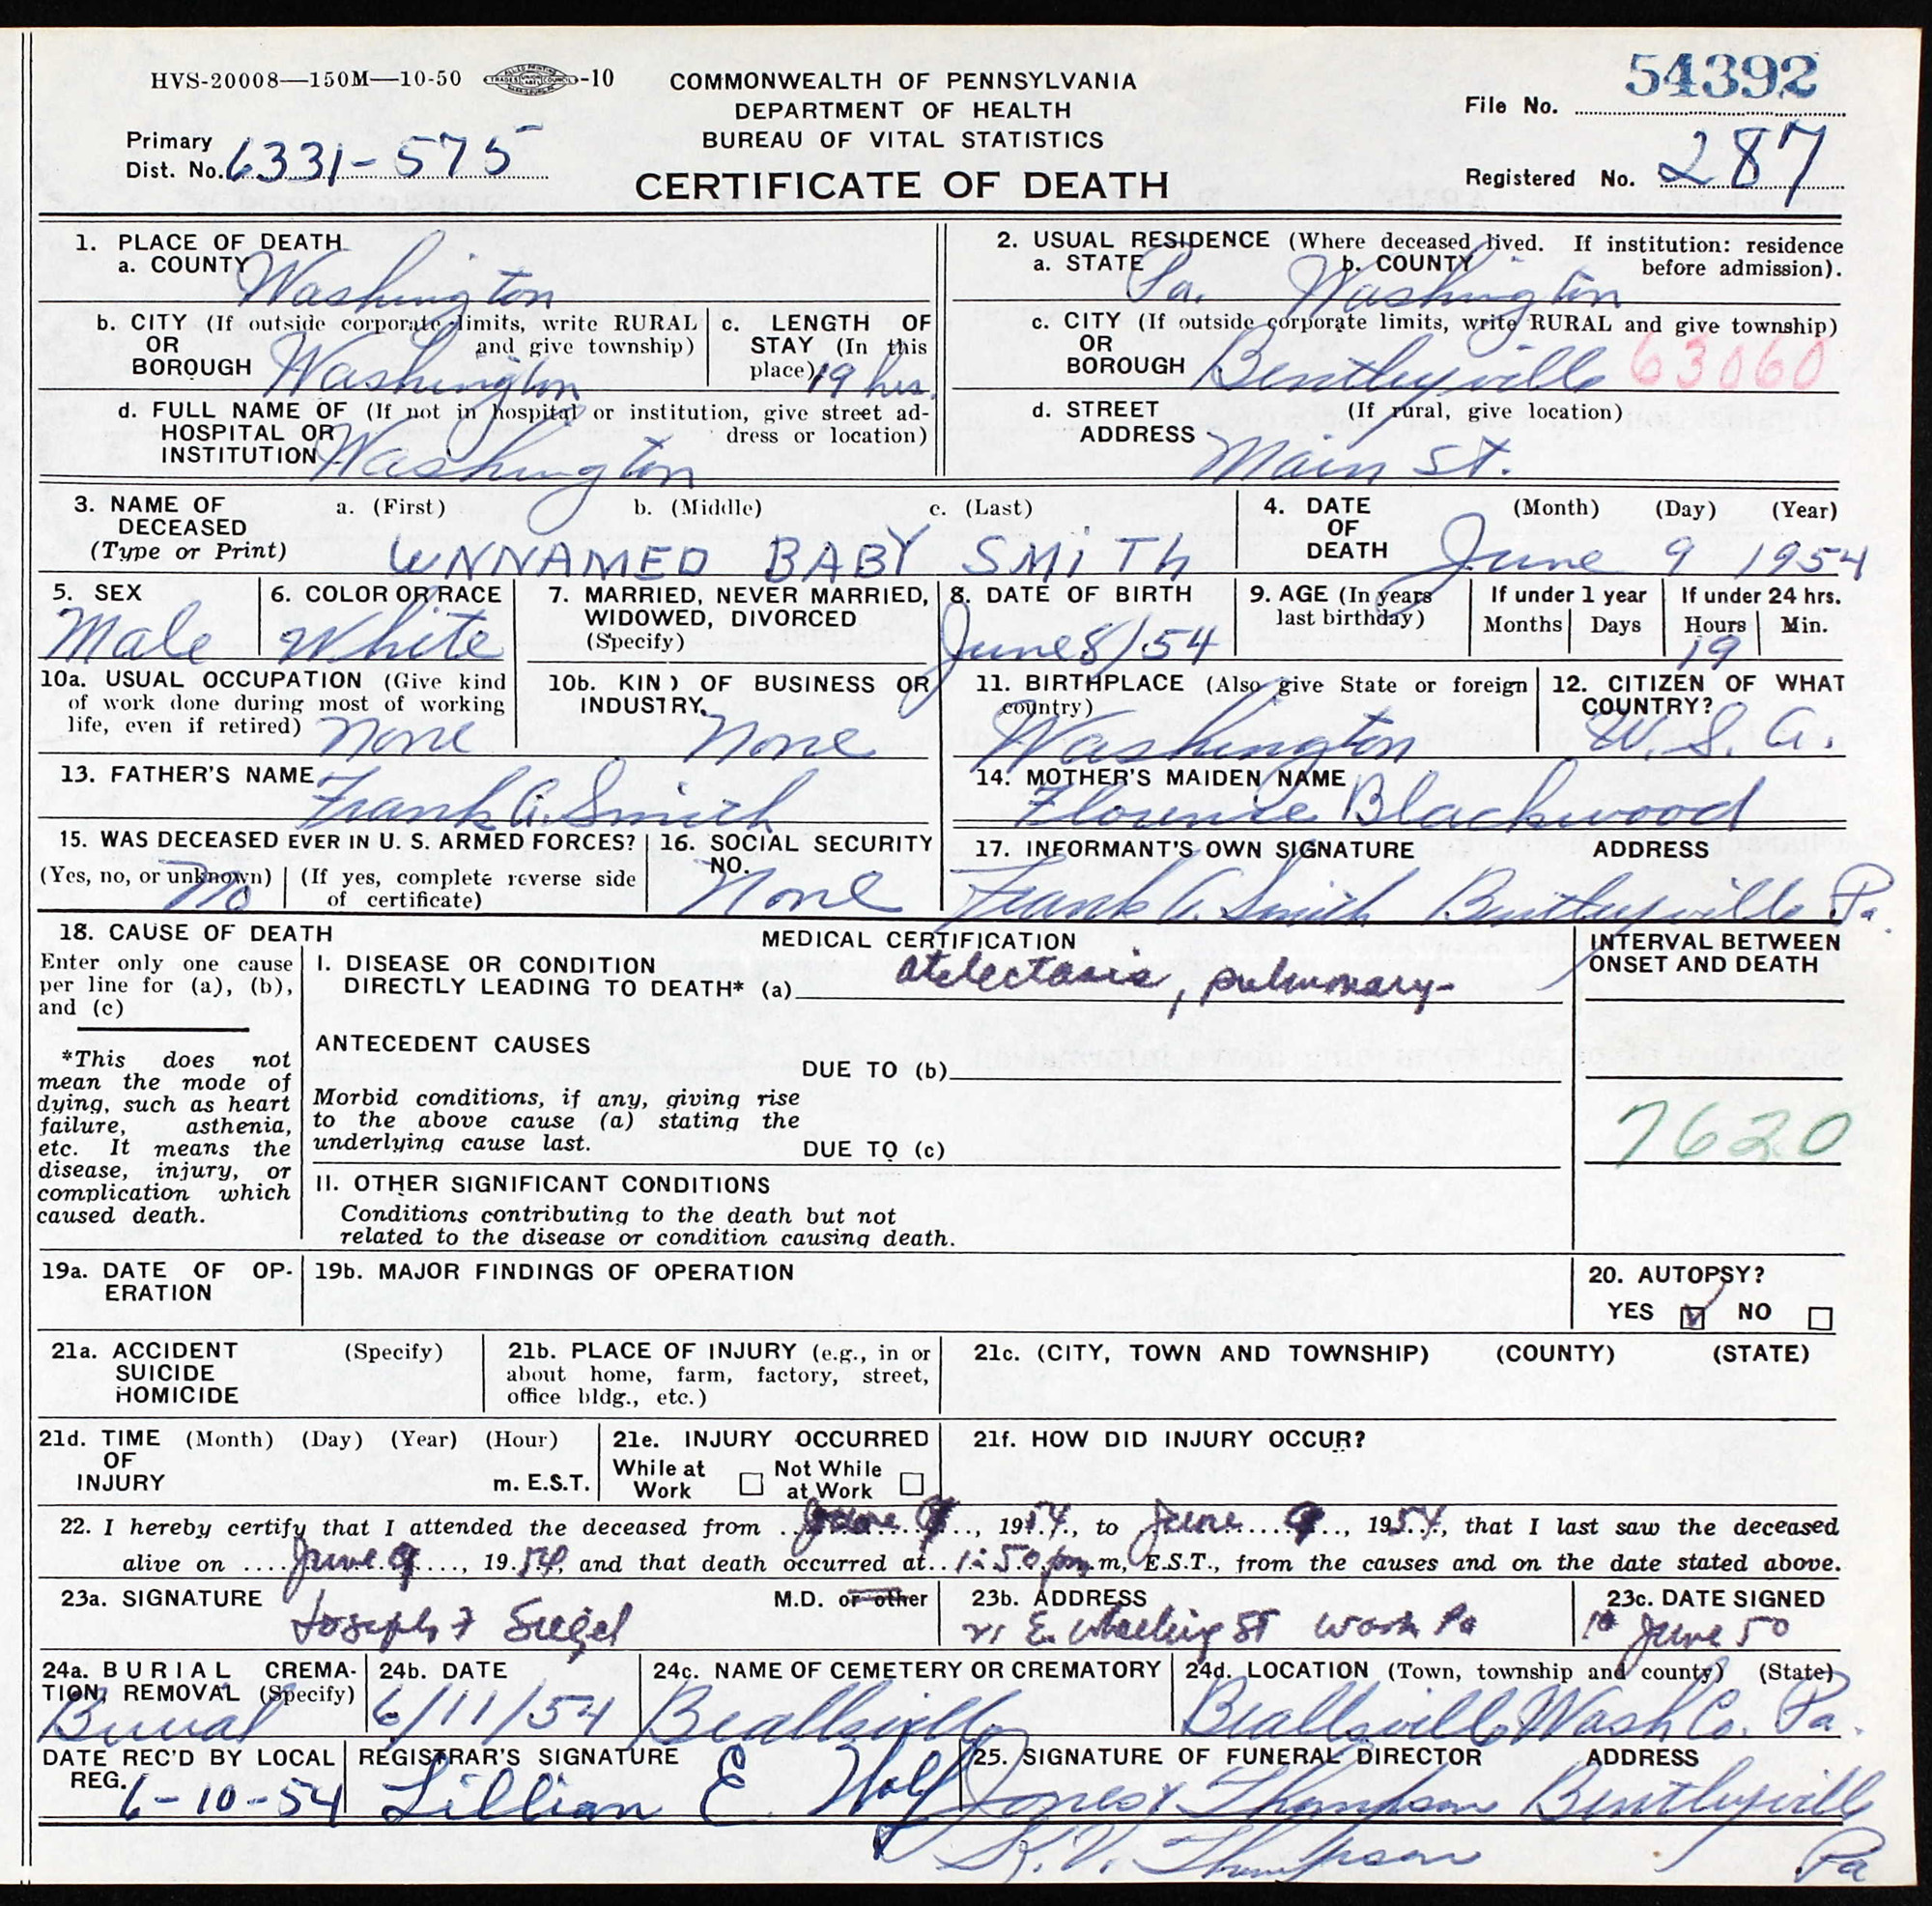 HVS-20008—150M—10-50 -10
COMMONWEALTH OF PENNSYLVANIA
DEPARTMENT OF HEALTH
BUREAU OF VITAL STATISTICS
CERTIFICATE OF DEATH
Primary
Dist. No. 6331-575
File No. 54392
Registered No. 287
1. PLACE OF DEATH
a. COUNTY Washington
b. CITY (If outside corporate limits, write RURAL
OR and give township)
BOROUGH Washington
c. LENGTH OF
STAY (In this
place) 19 hrs.
d. FULL NAME OF (If not in hospital or institution, give street ad-
HOSPITAL OR dress or location)
INSTITUTION Washington
2. USUAL RESIDENCE (Where deceased lived. If institution: residence
a. STATE b. COUNTY before admission).
Pa. Washington
c. CITY (If outside corporate limits, write RURAL and give township)
OR
BOROUGH Bentleyville 63060
d. STREET (If rural, give location)
ADDRESS Main St.
3. NAME OF a. (First) b. (Middle) c. (Last)
DECEASED
(Type or Print) UNNAMED BABY SMITH
4. DATE (Month) (Day) (Year)
OF
DEATH June 9 1954
5. SEX
Male
6. COLOR OR RACE
White
7. MARRIED, NEVER MARRIED,
WIDOWED, DIVORCED
(Specify)
8. DATE OF BIRTH
June 8/54
9. AGE (In years
last birthday)
If under 1 year
Months Days
If under 24 hrs.
Hours Min.
19
10a. USUAL OCCUPATION (Give kind
of work done during most of working
life, even if retired) None
10b. KIND OF BUSINESS OR
INDUSTRY.
None
11. BIRTHPLACE (Also give State or foreign
country)
Washington
12. CITIZEN OF WHAT
COUNTRY?
U. S. A.
13. FATHER'S NAME
Frank A. Smith
14. MOTHER'S MAIDEN NAME
Florence Blackwood
15. WAS DECEASED EVER IN U. S. ARMED FORCES?
(Yes, no, or unknown) (If yes, complete reverse side
No of certificate)
16. SOCIAL SECURITY
NO.
None
17. INFORMANT'S OWN SIGNATURE ADDRESS
Frank A. Smith Bentleyville Pa.
18. CAUSE OF DEATH
Enter only one cause
per line for (a), (b),
and (c)
*This does not
mean the mode of
dying, such as heart
failure, asthenia,
etc. It means the
disease, injury, or
complication which
caused death.
MEDICAL CERTIFICATION
I. DISEASE OR CONDITION
DIRECTLY LEADING TO DEATH* (a) atelectasis, pulmonary-
ANTECEDENT CAUSES
DUE TO (b)
Morbid conditions, if any, giving rise
to the above cause (a) stating the
underlying cause last.
DUE TO (c)
II. OTHER SIGNIFICANT CONDITIONS
Conditions contributing to the death but not
related to the disease or condition causing death.
INTERVAL BETWEEN
ONSET AND DEATH
7620
19a. DATE OF OP-
ERATION
19b. MAJOR FINDINGS OF OPERATION
20. AUTOPSY?
YES NO
21a. ACCIDENT (Specify)
SUICIDE
HOMICIDE
21b. PLACE OF INJURY (e.g., in or
about home, farm, factory, street,
office bldg., etc.)
21c. (CITY, TOWN AND TOWNSHIP) (COUNTY) (STATE)
21d. TIME (Month) (Day) (Year) (Hour)
OF
INJURY m. E.S.T.
21e. INJURY OCCURRED
While at Not While
Work at Work
21f. HOW DID INJURY OCCUR?
22. I hereby certify that I attended the deceased from June 9, 1954, to June 9, 1954, that I last saw the deceased
alive on June 9, 1954, and that death occurred at 1:50 pm m, E.S.T., from the causes and on the date stated above.
23a. SIGNATURE M.D. or other
Joseph F Siegel
23b. ADDRESS
E. Wheeling St Wash Pa
23c. DATE SIGNED
10 June 50
24a. BURIAL CREMA-
TION, REMOVAL (Specify)
Burial
24b. DATE
6/11/54
24c. NAME OF CEMETERY OR CREMATORY
Beallsville
24d. LOCATION (Town, township and county) (State)
Beallsville Wash Co. Pa.
DATE REC'D BY LOCAL
REG. 6-10-54
REGISTRAR'S SIGNATURE
Lillian E. Wolf
25. SIGNATURE OF FUNERAL DIRECTOR ADDRESS
Jones & Thompson Bentleyville
K. V. Thompson Pa